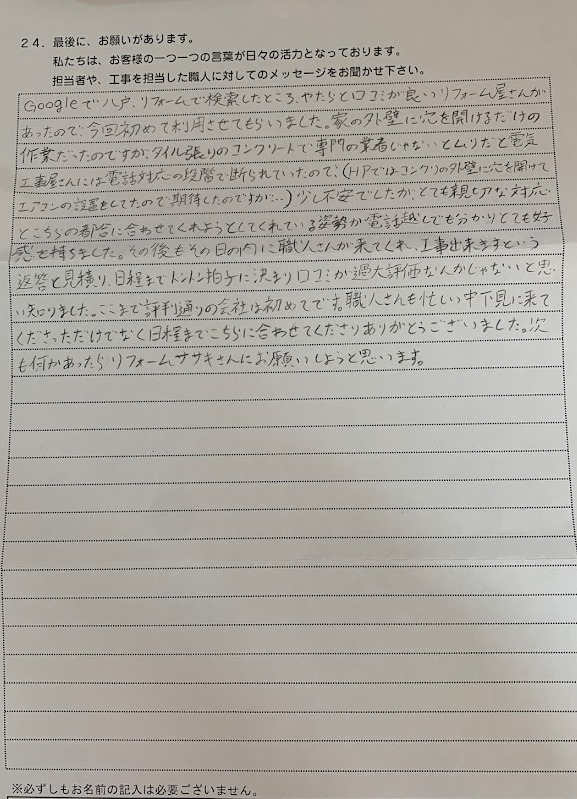 24．最後に、お願いがあります。
私たちは、お客様の一つ一つの言葉が日々の活力となっております。
担当者や、工事を担当した職人に対してのメッセージをお聞かせ下さい。
Googleで八戸、リフォームで検索したところ、やたらと口コミが良いリフォーム屋さんが
あったので、今回初めて利用させてもらいました。家の外壁に穴を開けるだけの
作業だったのですが、タイル張りのコンクリートで専門の業者じゃないとムリだと電気
工事屋さんには電話対応の段階で断られていたので、(HPではコンクリの外壁に穴を開けて
エアコンの設置をしてたので期待したのですが…)少し不安でしたが、とても親切な対応
とこちらの都合に合わせてくれようとしてくれている姿勢が電話越しでも分かりとても好
感を持ちました。その後もその日の内に職人さんが来てくれ、工事出来ますという
返答と見積り、日程までトントン拍子に決まり口コミが過大評価なんかじゃないと思
い知りました。ここまで評判通りの会社は初めてです。職人さんも忙しい中下見に来て
くださっただけでなく日程までこちらに合わせてくださりありがとうございました。次
も何かあったらリフォームササキさんにお願いしようと思います。
※必ずしもお名前の記入は必要ございません。